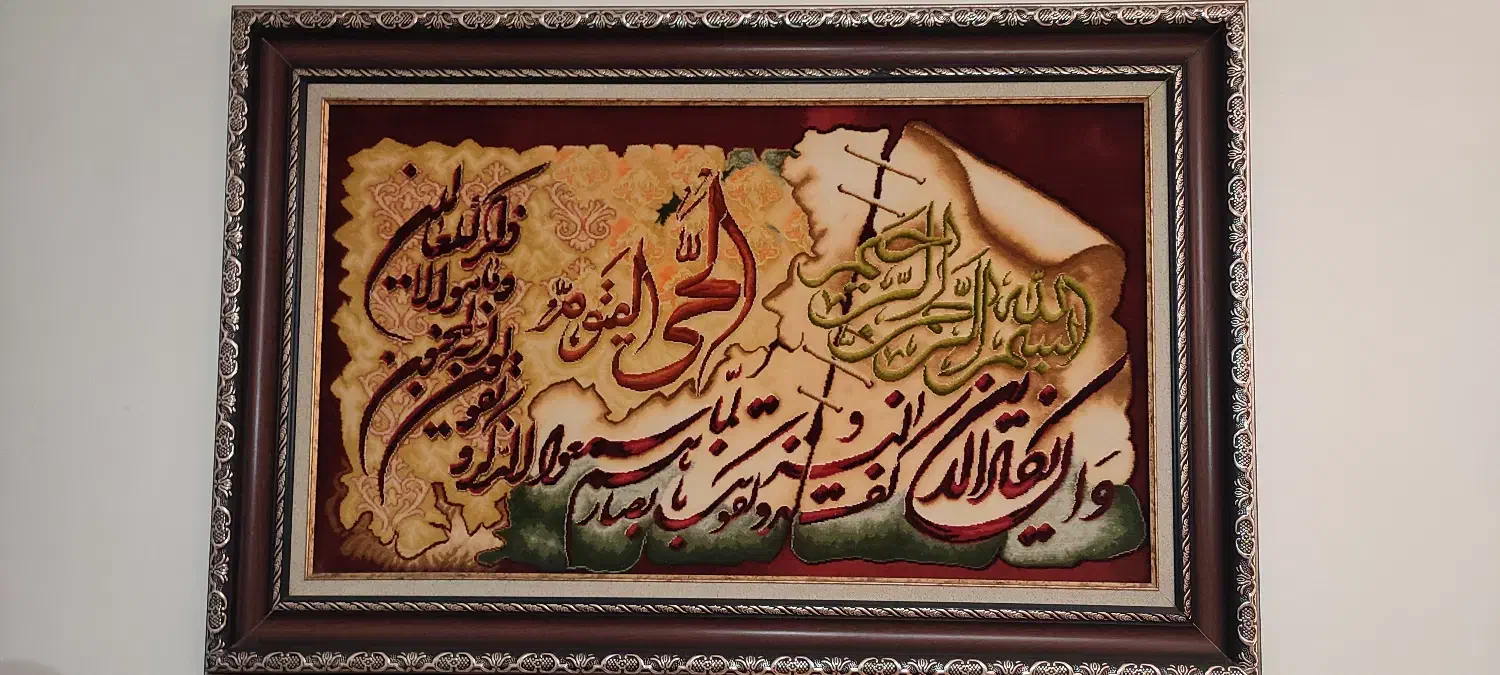 بسم الله الرحمن الرحيم
الله الحى القيوم
وَان يكاد الذين كفروا ليزلقونك بابصارهم لمّا سمعوا الذكر و
يقولون انه لمجنون
وما هو الا
ذكر للعالمين